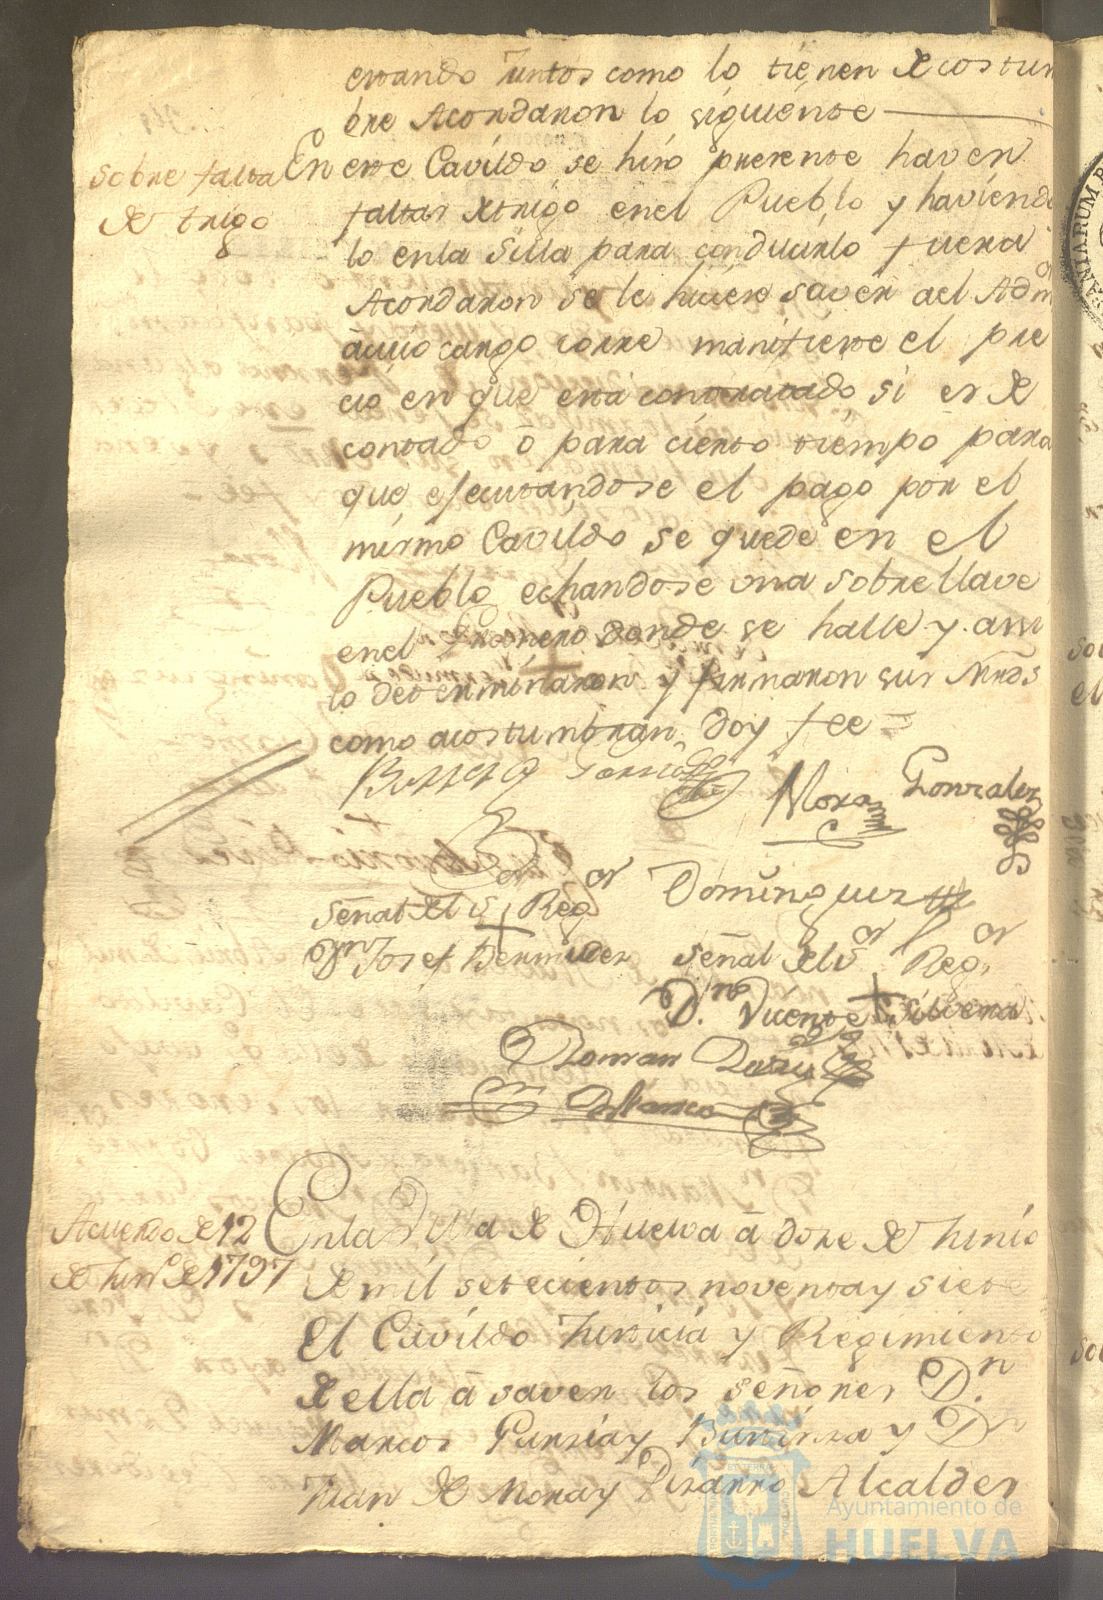 estando Juntos como lo tienen de costum
bre Acordaron lo siguiente
sobre falta
de trigo
En este Cavildo se hizo presente haver
faltas de trigo enel Pueblo y haviendo
lo enla Silla para conducirlo fuera
Acordaron se le hiciese saver ael Adm.or
ācuio cargo corre manifieste el pre
cio en que está contratado, si es de
contado ō para cierto tiempo para
que ejecutandose el pago por el
mismo Cavildo se quede en el
Pueblo echandose una sobre llave
enel Granero donde se halle y assi
lo determinaron y firmaron sus Mrds
como acostumbran, doy fee =
Mora Gonzalez
Dominguez
señal del s.or Reg.or
D.n Josef Bermudez
señal del s.or Reg.or
D.n Vicente Silvera
Acuerdo de 12
de Jun.o de 1797
Enla Villa de Huelva ā doze de Junio
de mil setecientos noventa y siete
El Cavildo Justicia y Regimiento
de ella ā saver los señores D.n
Marcos Garzia y y D.n
Juan de Mora y Pizarro Alcaldes
Ayuntamiento de
HUELVA